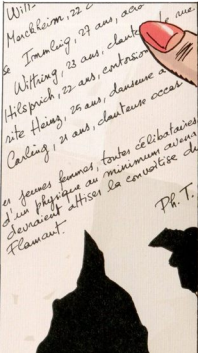 Will
Merckheim, 22
Immling, 27 ans, 
Wittring, 23 ans, chante de rue
Hilsprich, 22 ans, contorsion
rite Heinz, 25 ans, danseuse
Carling, 21 ans, chanteuse occas
es jeunes femmes, toutes célibataires
d'un physique au minimum avena
devraient attiser la convoitise du
Flamant.
Ph. T.